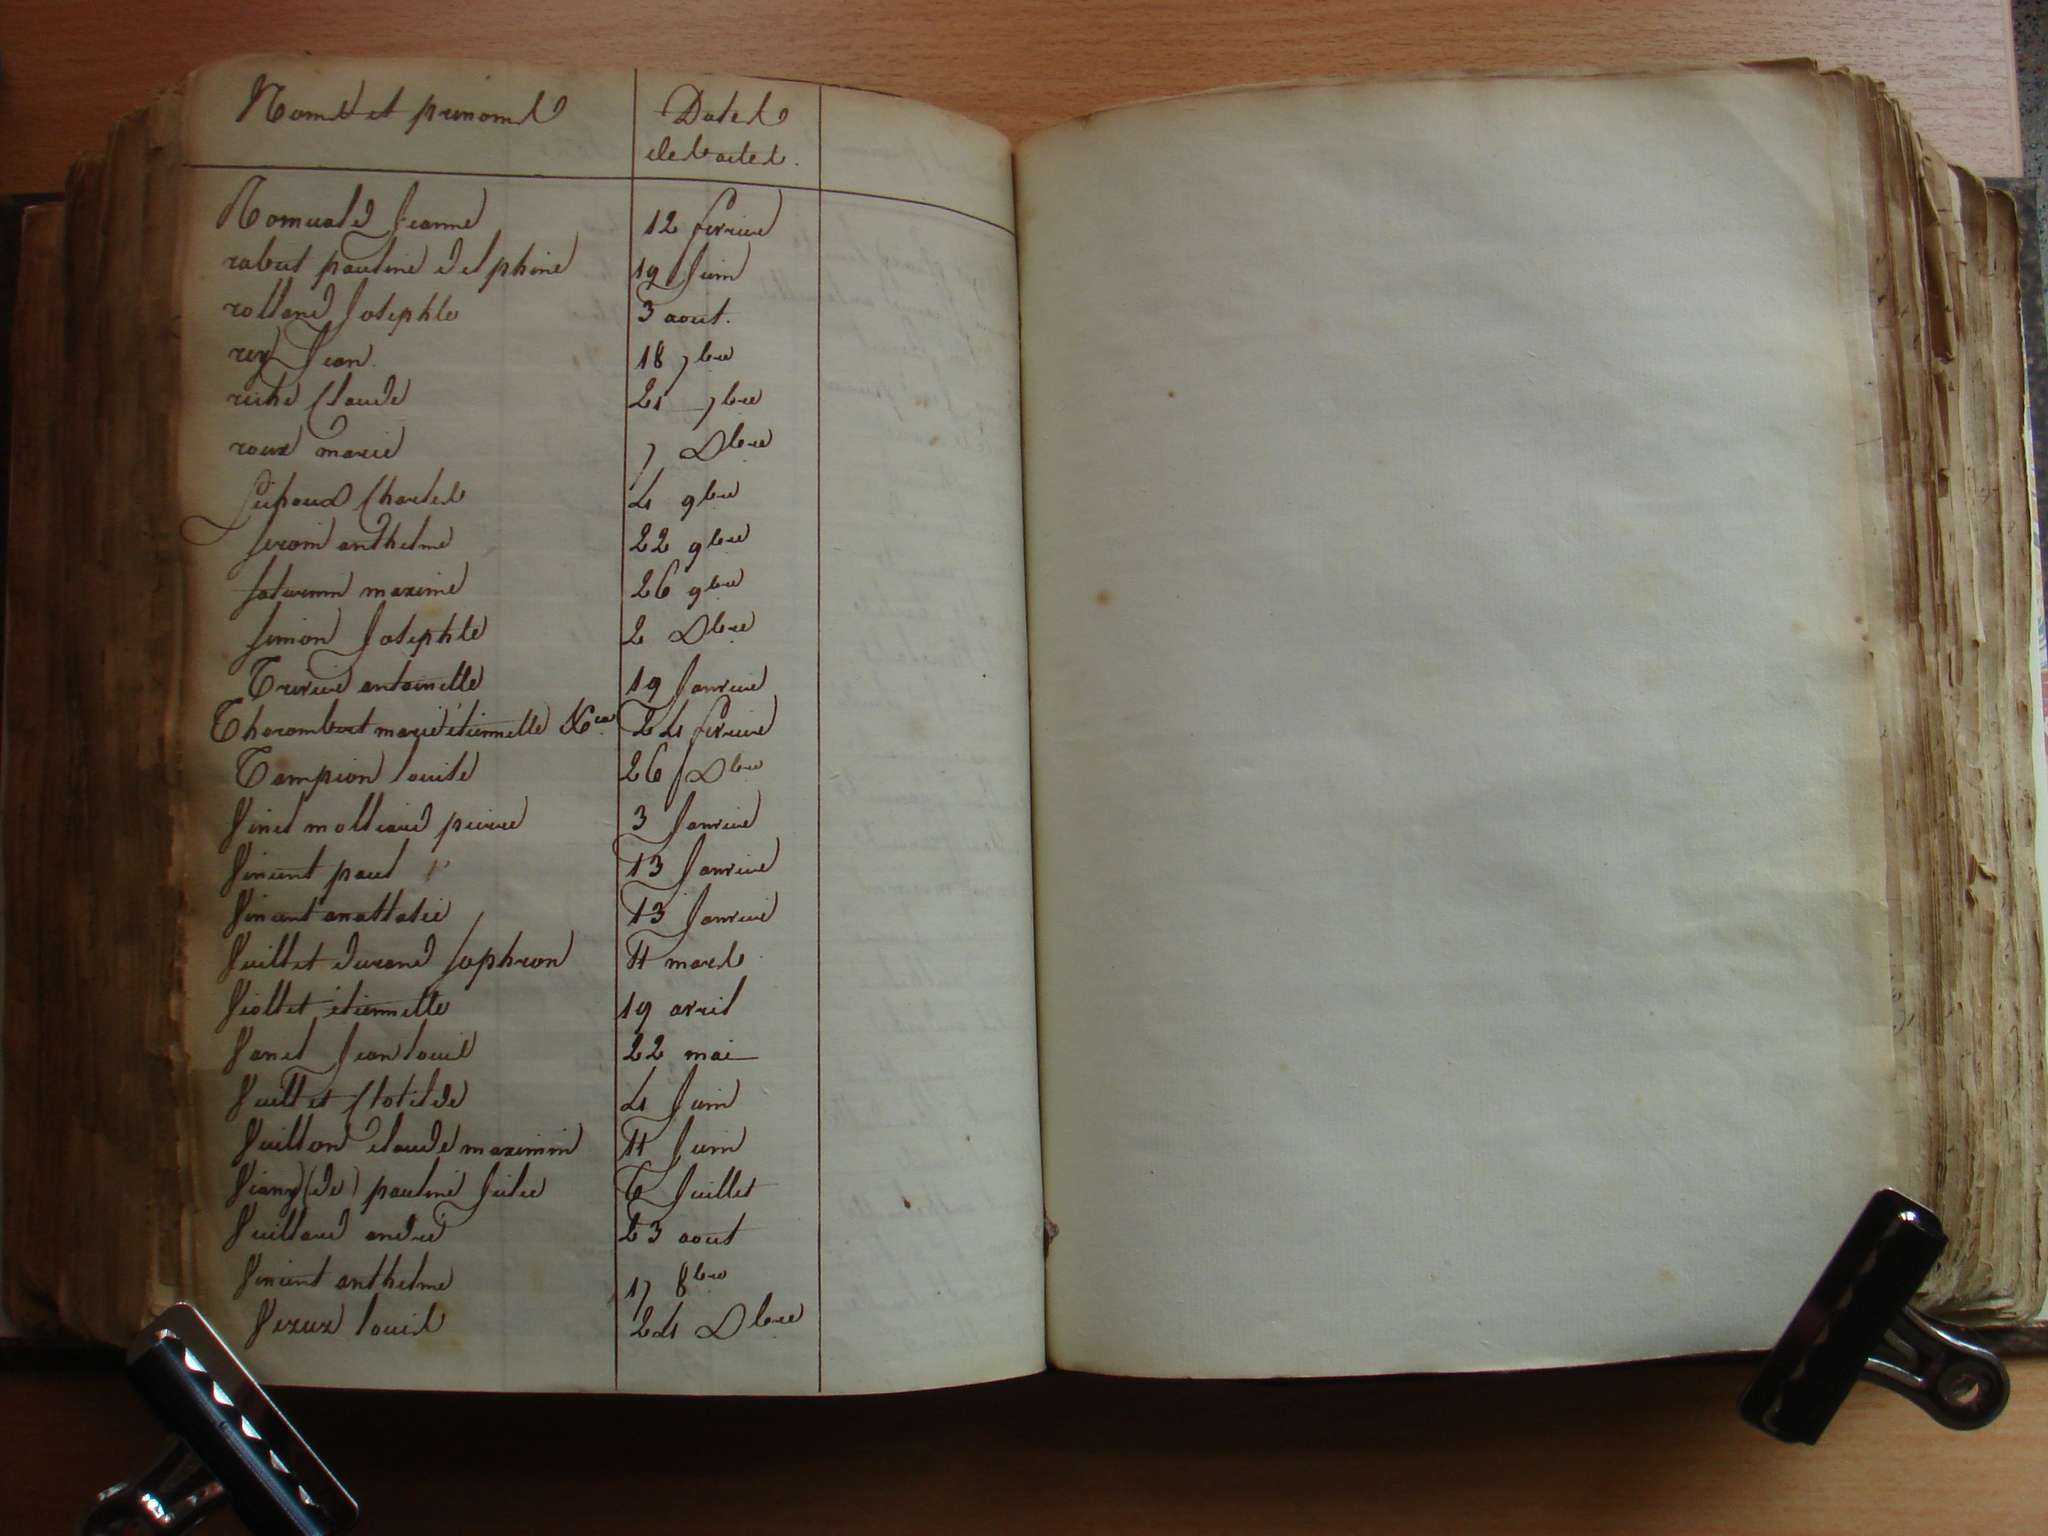 Noms et prenoms
Dates
des actes.
Romuald Jeanne 12 fevrier
rabut pauline delphine 19 Juin
rolland Josephte 3 aout.
rey Jean 18 7bre
riche Claude 21 7bre
roux marie 7 Dbre
Charles 4 9bre
anthelme 22 9bre
Saturnin maxime 26 9bre
Simon Josephte 2 Dbre
antoinette 19 Janvier
Tharombert marie étiennette 24 fevrier
Tampion louise 26 Dbre
Vinet molliard pierre 3 Janvier
Vincent paul 13 Janvier
Vincent anattasie 13 Janvier
Vuillet durand Sophron 11 mars
Viollet étiennette 19 avril
Vanet Jean louis 22 mai
Vuillet Clotilde 4 Juin
Vuillon claude maximin 11 Juin
Viany (de) pauline Julie 6 Juillet
Vuillard andré 23 aout
Vincent anthelme 17 8bre
Vezux louis 24 Dbre